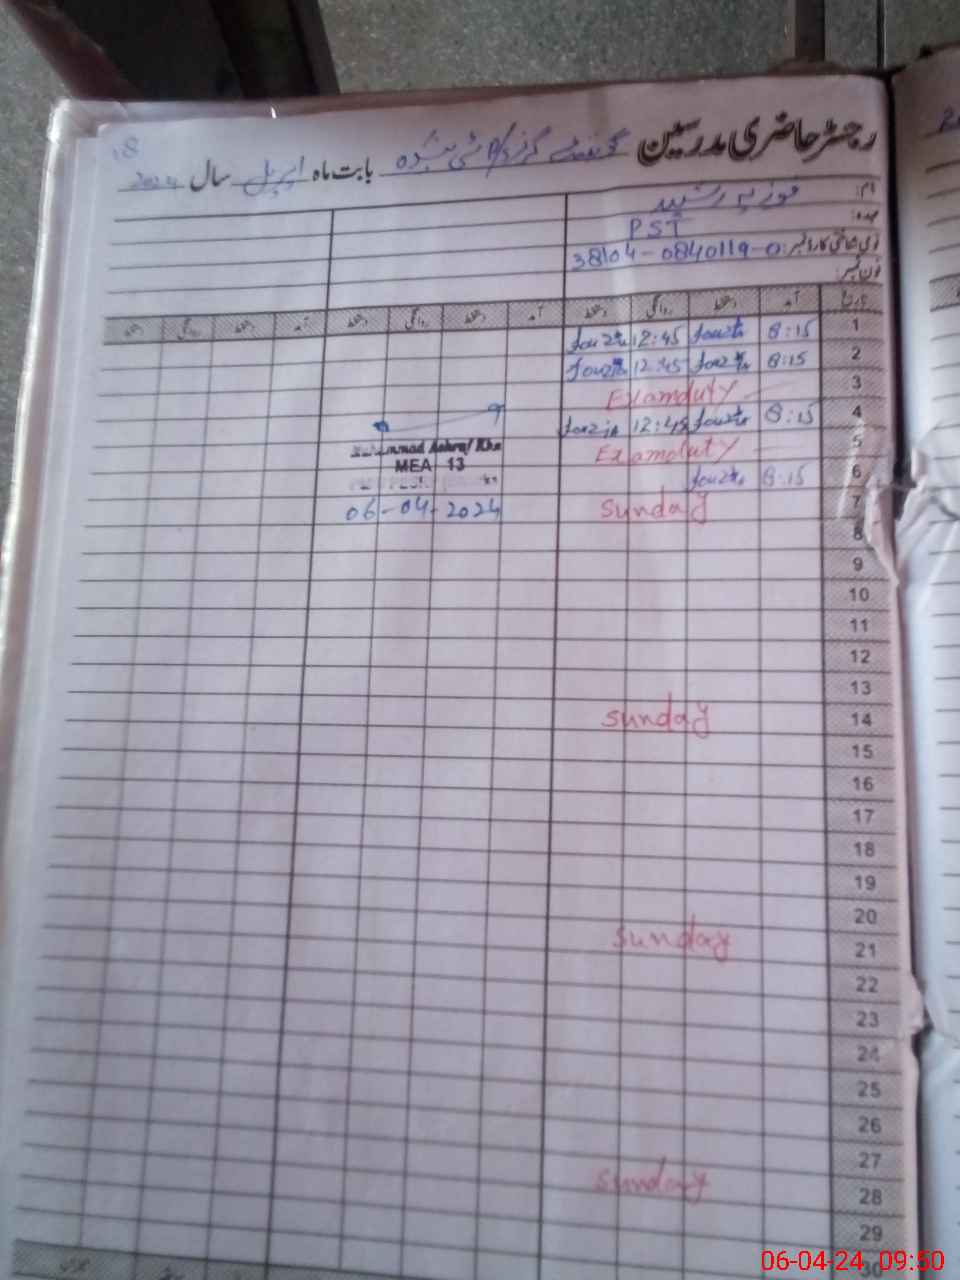 رجسٹر حاضری مدرسین گورنمنٹ گرلز بابت ماہ اپریل سال 2024
نام: فوزیہ رشید
عہدہ: PST
قومی شناختی کارڈ نمبر: 38104-0840119-0
فون نمبر:
تاریخ آمد دستخط روانگی دستخط آمد دستخط روانگی دستخط آمد دستخط روانگی دستخط
1 8:15 Fouzia 12:45 Fouzia
2 8:15 Fouzia 12:45 Fouzia
3 Examduty
4 8:15 Fouzia 12:45 Fouzia
5 Examduty
Muhammad Ashraf Kha
6 8:15 Fouzia
MEA 13
7 Sunday
06-04-2024
8
9
10
11
12
13
14 Sunday
15
16
17
18
19
20
21 Sunday
22
23
24
25
26
27
28 Sunday
29
30
06-04-24, 09:50